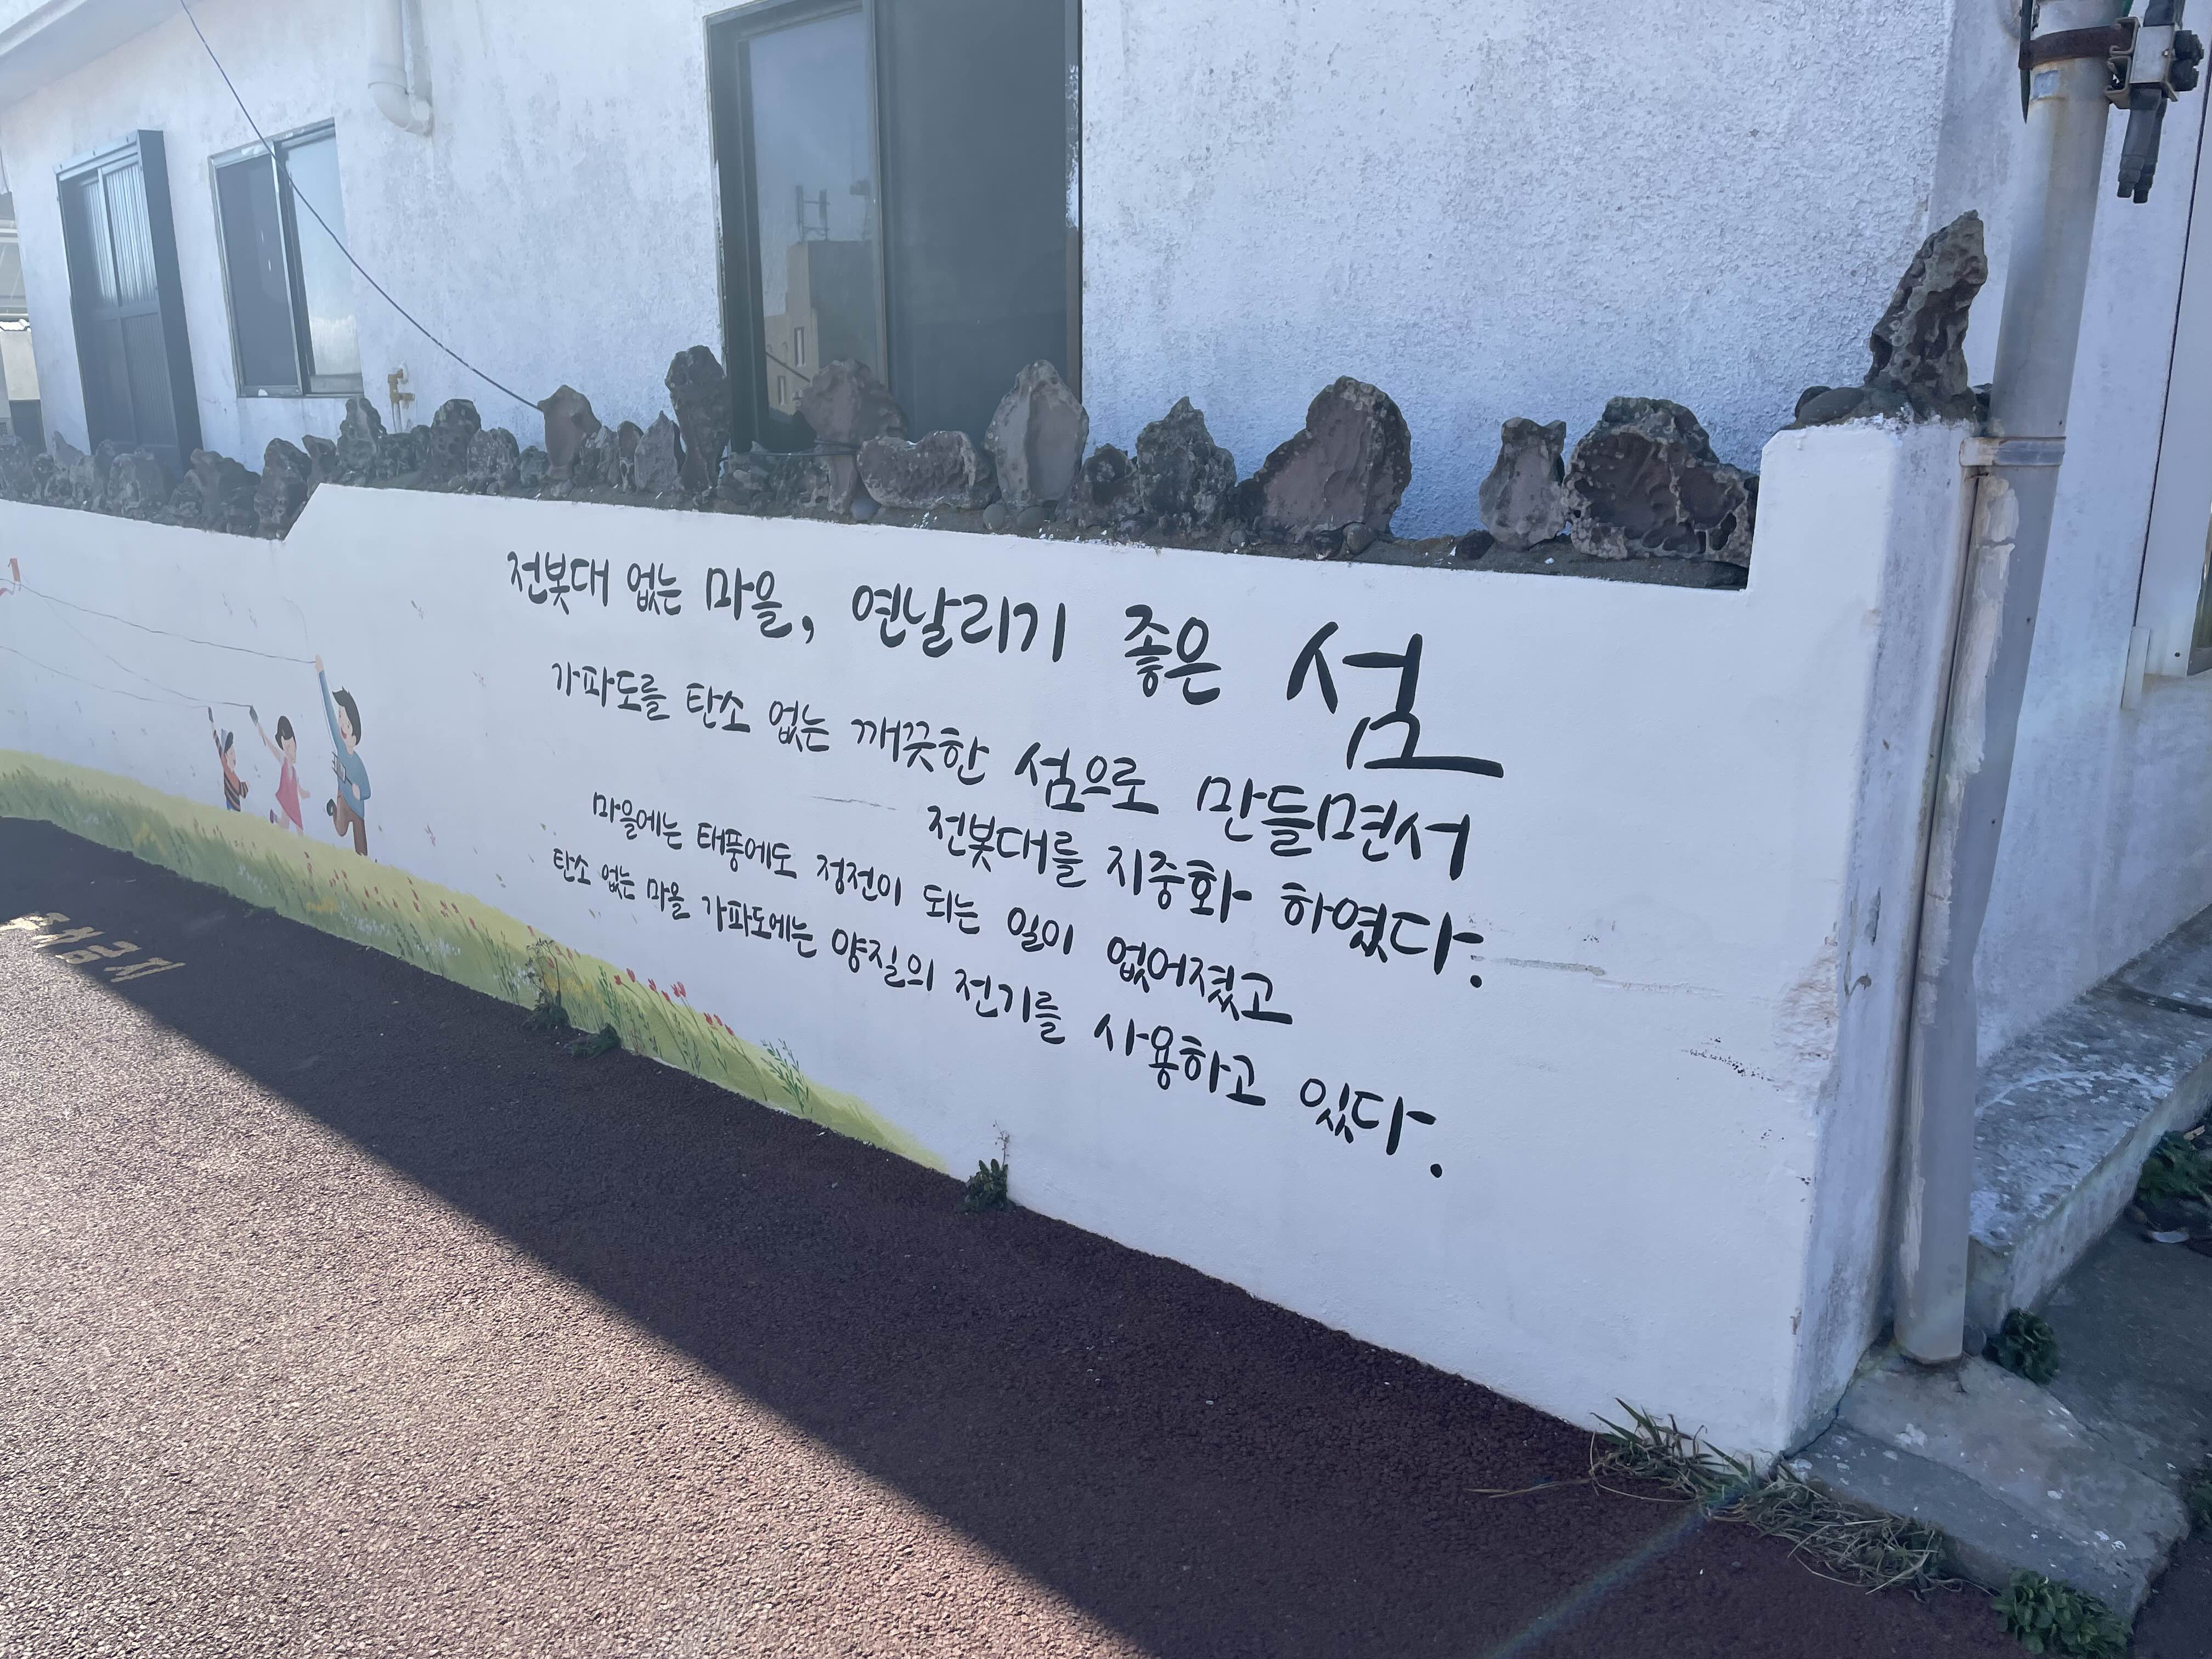 전봇대 없는 마을, 연날리기 좋은 섬
가파도를 탄소 없는 깨끗한 섬으로 만들면서
전봇대를 지중화 하였다.
마을에는 태풍에도 정전이 되는 일이 없어졌고
탄소 없는 마을 가파도에는 양질의 전기를 사용하고 있다.